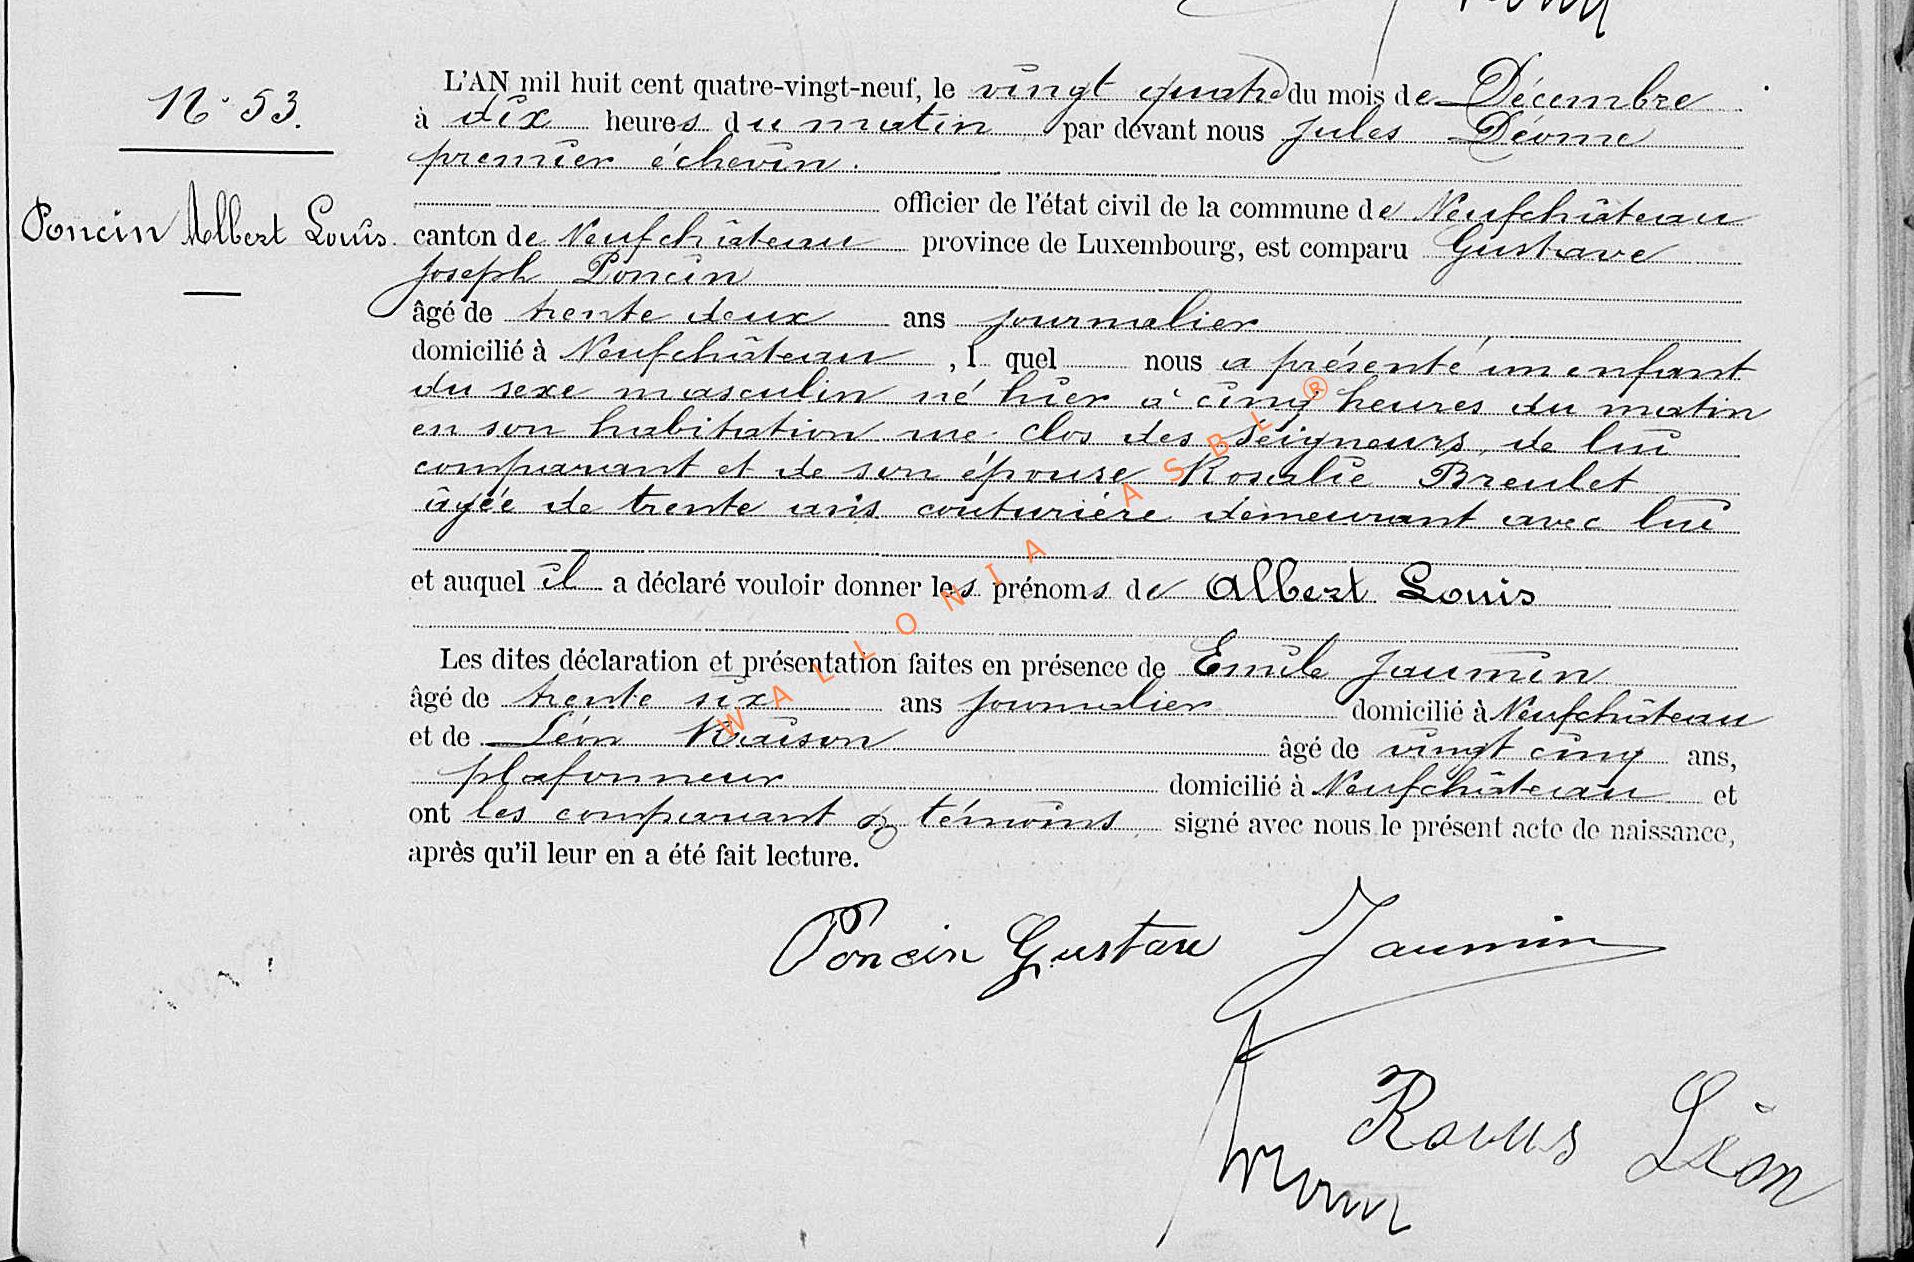 N° 53.
Poncin Albert Louis.
L'AN mil huit cent quatre-vingt-neuf, le vingt quatre du mois de Décembre
à dix heures du matin par devant nous Jules Déome
premier échevin.
officier de l'état civil de la commune de Neufchâteau
canton de Neufchâteau province de Luxembourg, est comparu Gustave
Joseph Poncin
âgé de trente deux ans journalier
domicilié à Neufchâteau, l quel nous a présenté un enfant
du sexe masculin né hier à cinq heures du matin
en son habitation rue clos des Seigneurs, de lui
comparant et de son épouse Rosalie Breulet
âgée de trente ans couturière demeurant avec lui
et auquel il a déclaré vouloir donner les prénoms de Albert Louis
Les dites déclaration et présentation faites en présence de Emile Jaumin
âgé de trente six ans journalier domicilié à Neufchâteau
et de Léon âgé de vingt cinq ans,
plafonneur domicilié à Neufchâteau et
ont les comparant & témoins signé avec nous le présent acte de naissance,
après qu'il leur en a été fait lecture.
Poncin Gustave Jaumin
Léon
WALLONIA ASBL ®